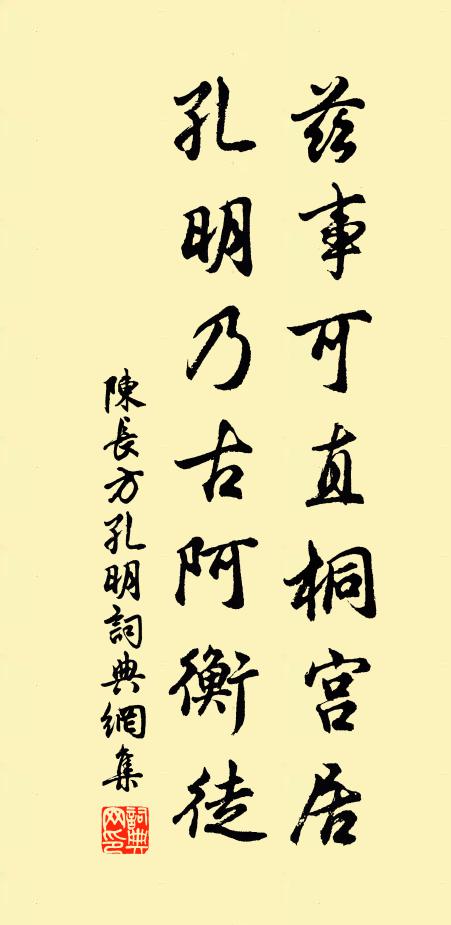 茲事可直桐宮居
孔明乃古阿衡徒
陳長方孔明詞典網集
詞典网印